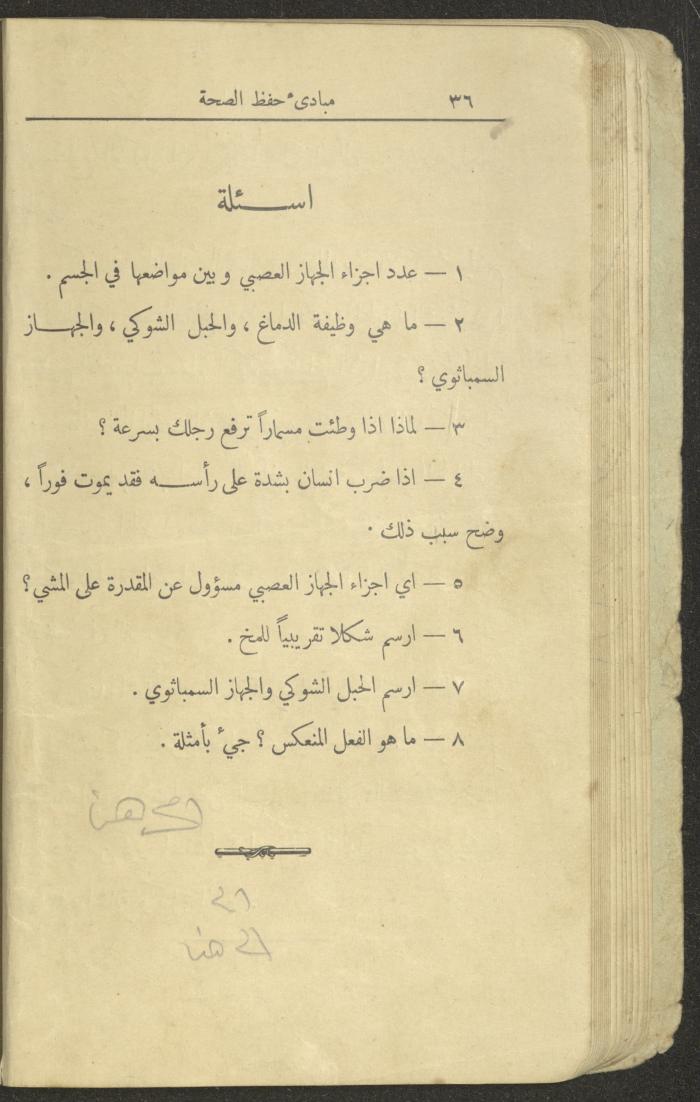 ٣٦ مبادىء حفظ الصحة
اســـئلة
١ — عدد اجزاء الجهاز العصبي وبين مواضعها في الجسم .
٢ — ما هي وظيفة الدماغ ، والحبل الشوكي ، والجهـــاز
السمباثوي ؟
٣ — لماذا اذا وطئت مسماراً ترفع رجلك بسرعة ؟
٤ — اذا ضرب انسان بشدة على رأســـه فقد يموت فوراً ،
وضح سبب ذلك .
٥ — اي اجزاء الجهاز العصبي مسؤول عن المقدرة على المشي ؟
٦ — ارسم شكلا تقريبياً للمخ .
٧ — ارسم الحبل الشوكي والجهاز السمباثوي .
٨ — ما هو الفعل المنعكس ؟ جيء بأمثلة .
الى هنا
الى
الى هنا